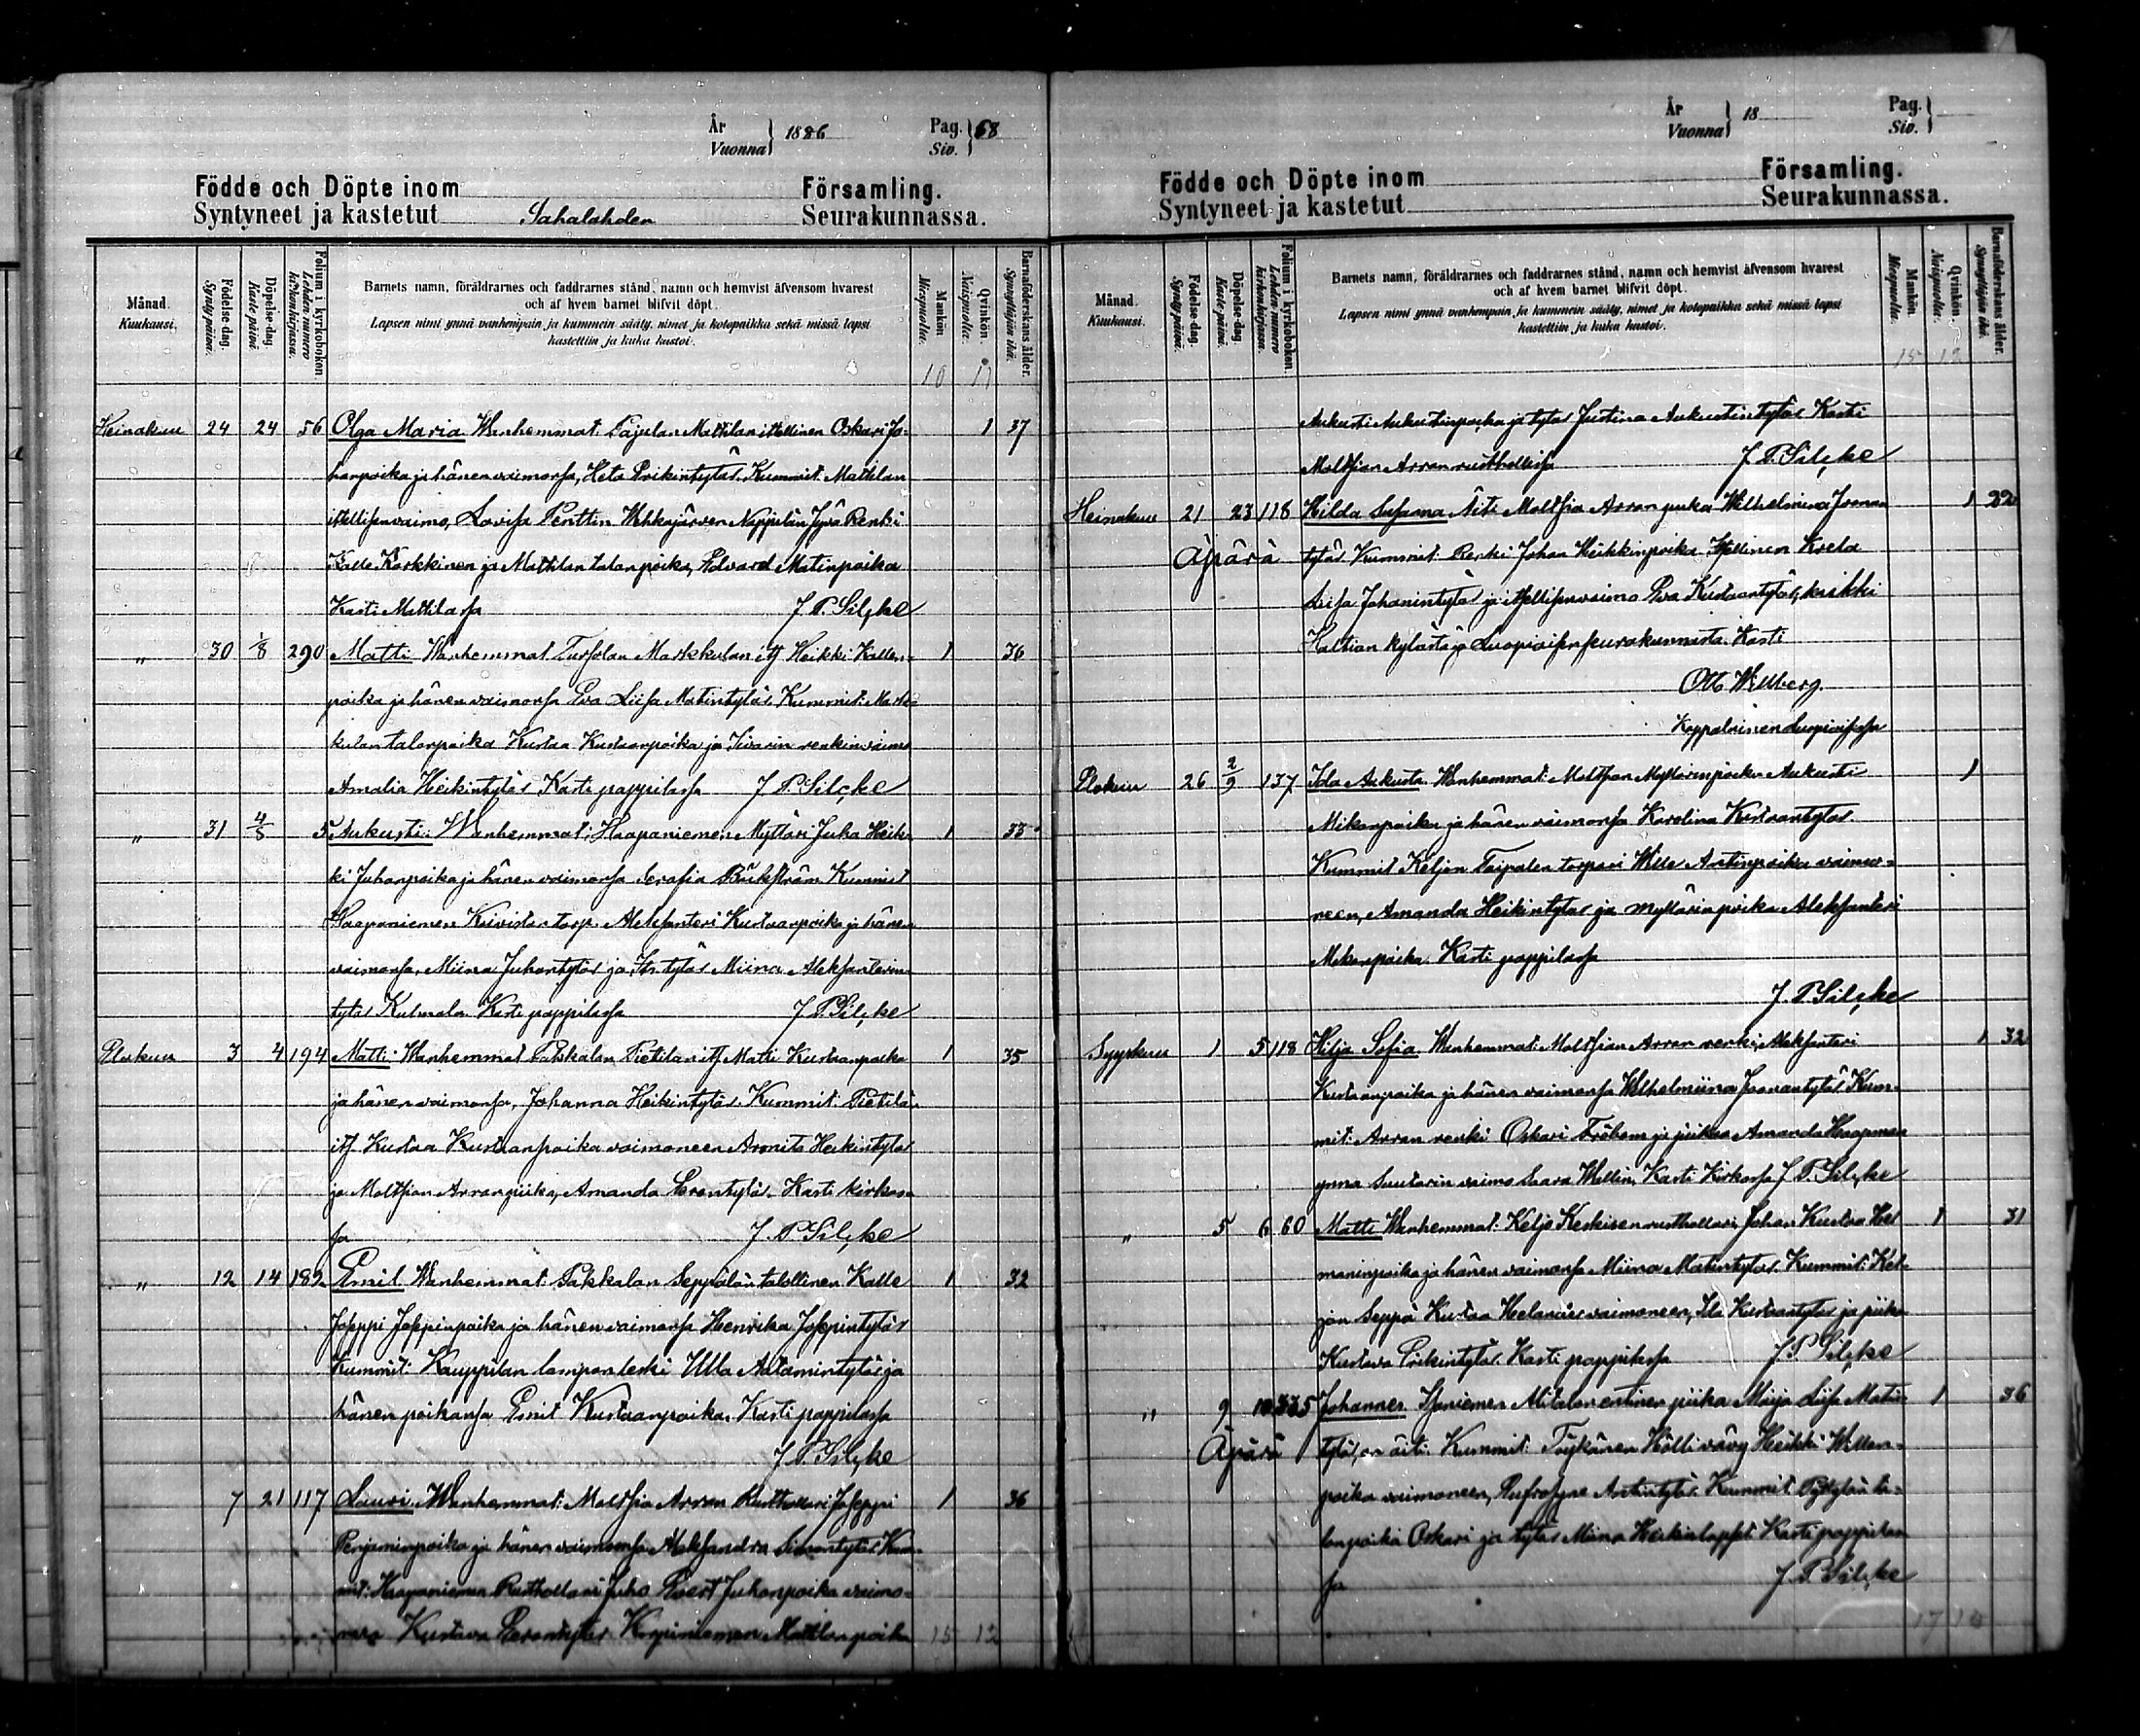 År
Vuonna } 1886
Pag.
Siv. } 68
Födde och Döpte inom Församling.
Syntyneet ja kastetut Sahalahden Seurakunnassa.
Månad. Kuukausi.
Födelse-dag. Syntypäivä.
Döpelse-dag. Kastepäivä.
Folium i kyrkoboken. Lehden numero kirkonkirjassa.
Barnets namn, föräldrarnes och faddrarnes stånd, namn och hemvist äfvensom hvarest
och af hvem barnet blifvit döpt.
Lapsen nimi ynnä vanhempain ja kummein sääty, nimet ja kotopaikka sekä missä lapsi
kastettiin ja kuka kastoi.
Mankön. Miespuolta.
Qvinkön. Naispuolta.
Barnaföderskans ålder. Synnyttäjän ikä.
10 11
Heinakuu 24 24 56 Olga Maria Wanhemmat Mattilan itellinen Oskari Jo- 1 37
hanpoika ja hänen vaimonsa, Heta Erikintytär. Kummit. Mattilan
itellisenvaimo, Lovisa Penttin Wehkajärven Renki
Kalle Karkkinen ja Mattilan talonpoika, Edvard Matinpoika
Kasti Mattilassa J. P. Silçke
" 30 1/8 290 Matti Wanhemmat Tursolan Markkulan its Heikki Kallen- 1 36
poika ja hänen vaimonsa Eva Liisa Matintytär Kummit: Mark-
kulan talonpoika Kustaa Kustaanpoika ja renkinvaimo
Amalia Heikintytär Kasti pappilassa J. P. Silçke
" 31 4/8 5 Aukusti: Wanhemmat: Haapaniemen Myttäri Juha Heik- 1 33
ki Juhanpoika ja hänen vaimonsa Serafia Bäckström Kummit
Haapaniemen torp. Aleksanteri Kustaanpoika ja hänen
vaimonsa, Miina Juhantytär ja tytär Miina Aleksanterin-
tytär Kulmala Kasti pappilassa J. P. Silçke
Elokuu 3 4 194 Matti: Wanhemmat Pakkalan Pietilan its Matti Kustaanpoika 1 35
ja hänen vaimonsa, Johanna Heikintytär. Kummit. Pietilän
its Kustaa Kustaanpoika vaimoneen Heikintytär
ja Moltsian Arranpiika, Amanda Eerontytär. Kasti kirkos-
sa J. P. Silçke
" 12 14 182 Emil Wanhemmat: Pakkalan Seppälän talollinen Kalle 1 32
Joseppi Josepinpoika ja hänen vaimonsa Henrika Josepintytär
Kummit: Kauppilan lampanleski Ulla Aatamintytär ja
hänen poikansa Emil Kustaanpoika. Kasti pappilassa
J. P. Silçke
7 21 117 Lauri. Wanhemmat: Moltsia Arran Rusthollari Joseppi 1 36
Penjaminpoika ja hänen vaimonsa Aleksandra Simontytär Kum-
mit: Haapaniemen Rusthollari Juho Evert Juhanpoika vaimo-
nensa Kustava Eerontytär Korpiniemen Mattilanpoika 15 12
År
Vuonna } 18
Pag.
Siv. }
Födde och Döpte inom Församling.
Syntyneet ja kastetut Seurakunnassa.
Månad. Kuukausi.
Födelse-dag. Syntypäivä.
Döpelse-dag. Kastepäivä.
Folium i kyrkoboken. Lehden numero kirkonkirjassa.
Barnets namn, föräldrarnes och faddrarnes stånd, namn och hemvist äfvensom hvarest
och af hvem barnet blifvit döpt.
Lapsen nimi ynnä vanhempain ja kummein sääty, nimet ja kotopaikka sekä missä lapsi
kastettiin ja kuka kastoi.
Mankön. Miespuolta.
Qvinkön. Naispuolta.
Barnaföderskans ålder. Synnyttäjän ikä.
15 12
Aukusti Aukustinpoika ja tytär Justina Aukustintytär Kasti
Moltsian Arran rusthollissa J. P. Silçke
Heinakuu 21 23 118 Hilda Susanna Äiti Moltsia Arran piika Wilhelmina Joonan 1 22
Äpärä tytär Kummit: Renki Johan Heikkinpoika Itsellinen Kreeta
Liisa Johanintytär ja itsellisenvaimo Eva Kustaantytär, kaikki
Haltian kylästä ja Luopioisen seurakunnasta. Kasti
Otto Willberg.
Kappalainen Luopioisissa
Elokuu 26 2/9 137 Ida Aukusta Wanhemmat: Moltsian Myttärinpoika Aukusti 1
Mikonpoika ja hänen vaimonsa Karolina Kustaantytär.
Kummit Keljon Taipalen torpari Wille Antinpoika vaimo-
neen, Amanda Heikintytär ja myttärinpoika Aleksanteri
Mikonpoika. Kasti pappilassa
J. P. Silçke
Syyskuu 1 5 118 Hilja Sofia. Wanhemmat: Moltsian Arran renki, Aleksanteri 1 32
Kustaanpoika ja hänen vaimonsa Wilhelmiina Joonantytär Kum-
mit: Arran renki Oskari ja piika Amanda Haapman
ynna Suutarin vaimo Saara Wallin, Kasti Kirkossa J. P. Silçke
" 5 6 60 Matti Wanhemmat: Keljo Keskisen rusthollari, Johan Kustaa Her- 1 31
maninpoika ja hänen vaimonsa Miina Matintytär. Kummit: Kel-
jon Seppä Kustaa vaimoneen, Ida Kustaantytär ja piika
Kustava Erikintytär. Kasti pappilassa J. P. Silçke
" 9 10 335 Johannes. Isoniemen entinen piika Maija Liisa Matin- 1 36
Äpärä tytär, on äiti. Kummit: Töykänen Hölli vävy Heikki Willen-
poika vaimoneen, Eufrosyne Antintytär. Kummit ta-
lonpoika Oskari ja tytär Miina Heikinlapset. Kasti pappilas-
sa J. P. Silçke
17